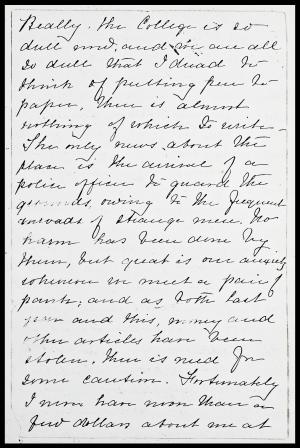 Really. the College is so
dull now, and we are all
so dull that I dread to
think of putting pen to
paper. There is almost
nothing of which to write -
The only news about the
place is the arrival of a
police officer to guard the
grounds, owing to the frequent
inroads of strange men. No
harm has been done by
them, but great is our anxiety
whenever we meet a pair of
pants; and as both last
year and this, money and
other articles have been
stolen, there is need for
some caution. Fortunately
I never have more than a
few dollars about me at